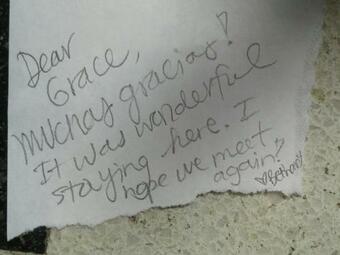 Dear
Grace,
Muchas gracias!
It was wonderful
staying here. I
hope we meet
again!
♡Bethany